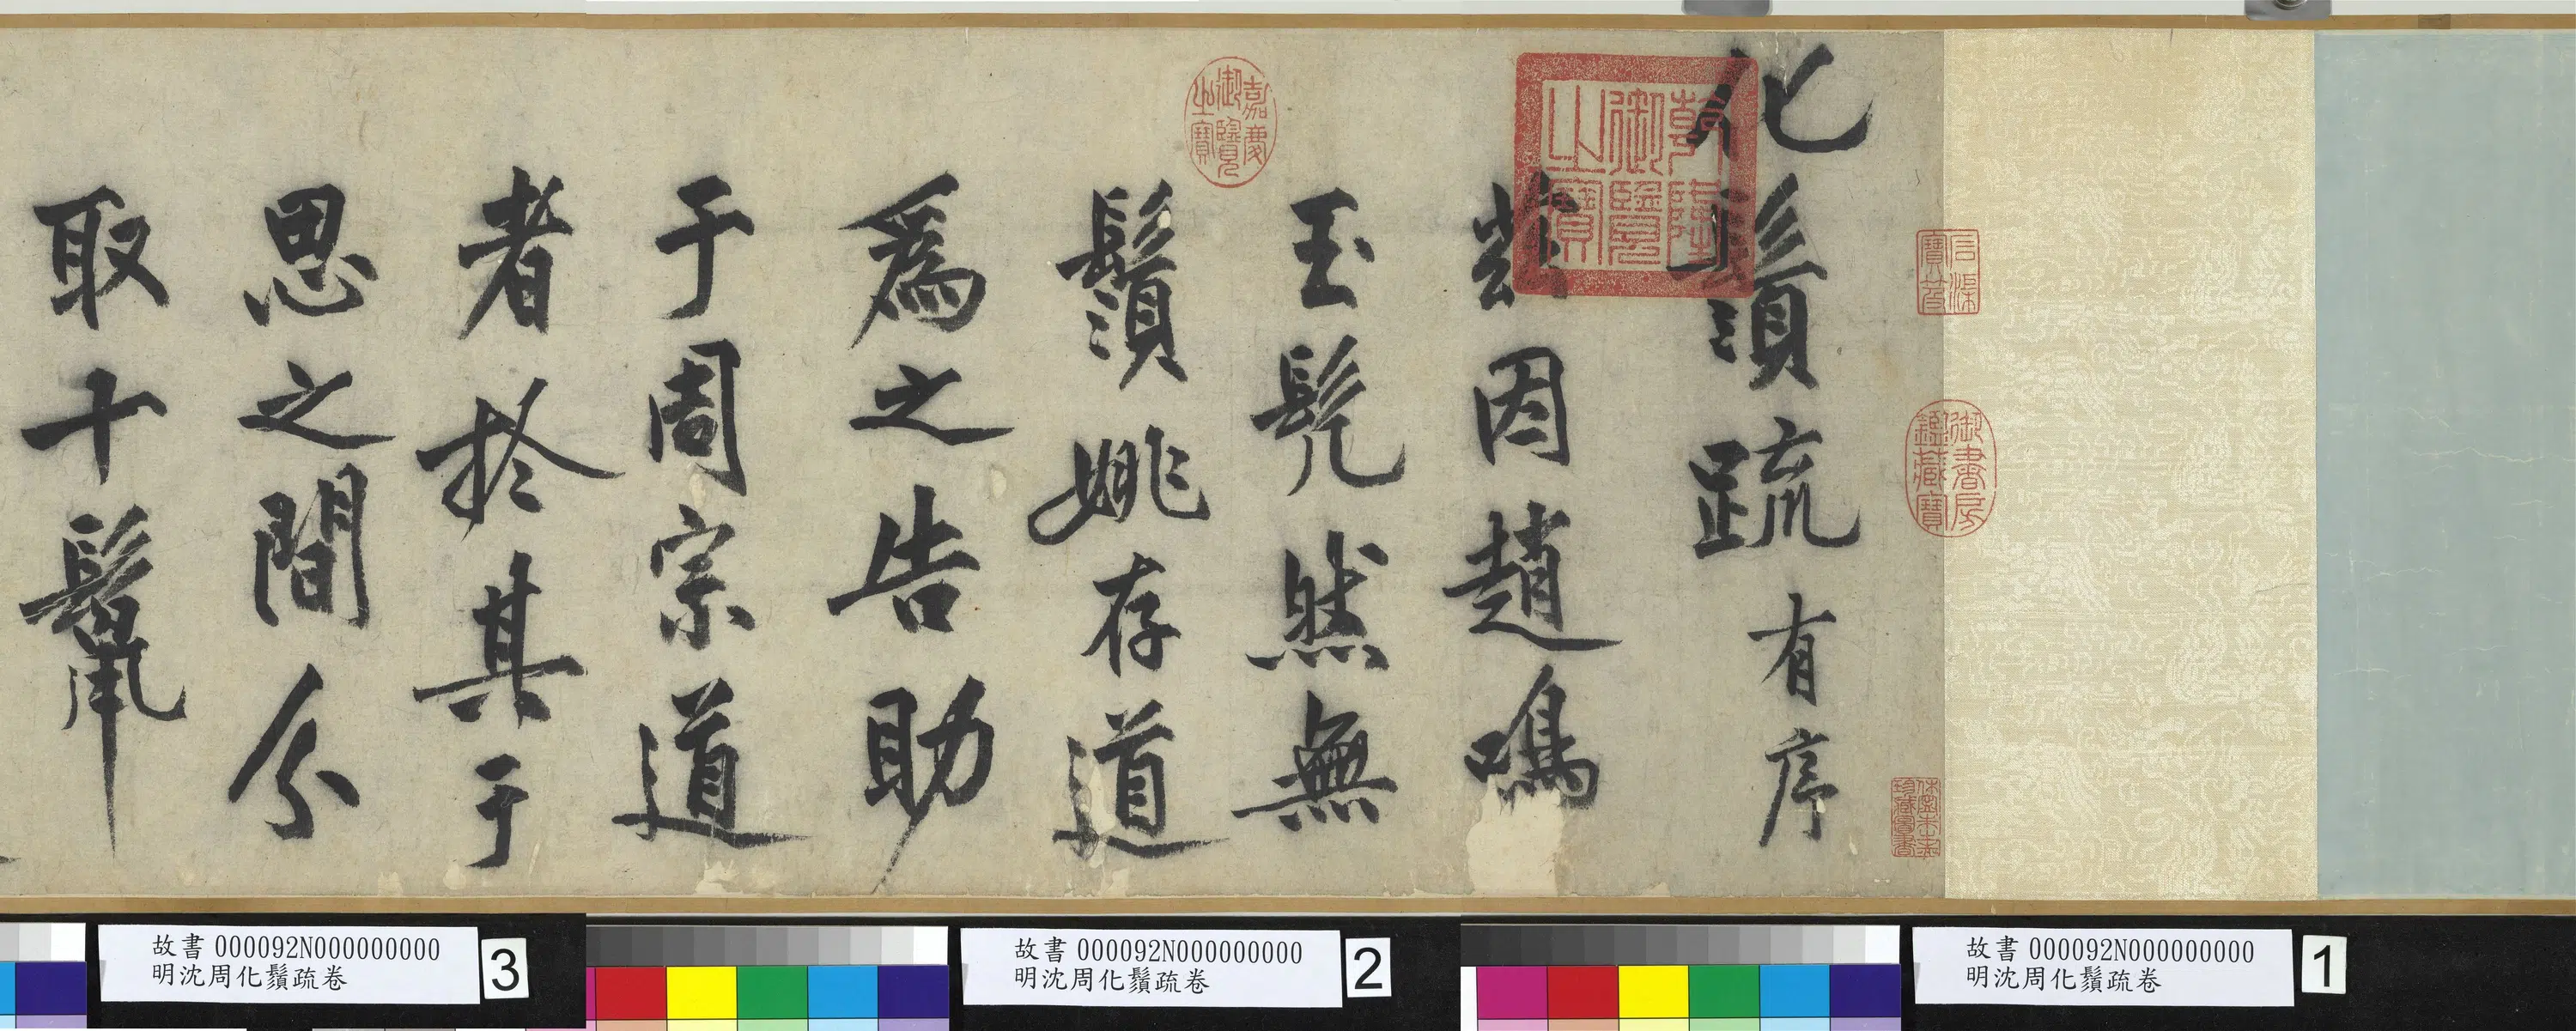 化鬚疏有序
茲因趙鳴
玉髡然無
鬚姚存道
為之告助
于周宗道
者於其于
思之間分
取十鬣
乾隆御覽之寶
嘉慶御覽之寶
御書房鑑藏寶
故書 000092N000000000
明沈周化鬚疏卷
1
故書 000092N000000000
明沈周化鬚疏卷
2
故書 000092N000000000
明沈周化鬚疏卷
3